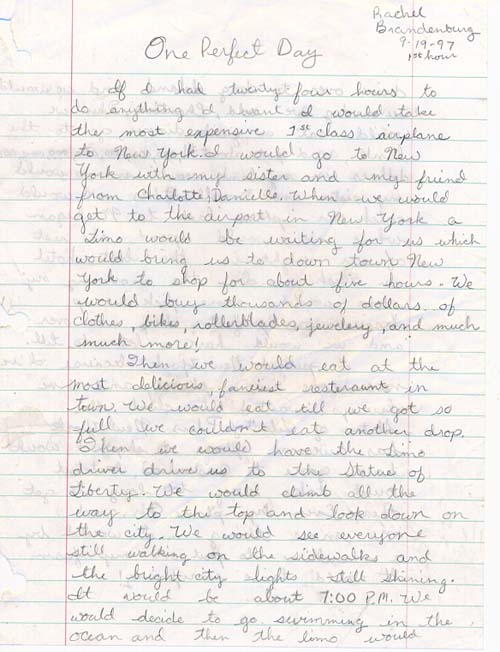 Rachel
Brandenburg
9-19-97
1st hour
One Perfect Day
If I had twenty four hours to
do anything I want I would take
the most expensive 1st class airplane
to New York. I would go to New
York with my sister and my friend
from Charlotte, Danielle. When we would
get to the airport in New York a
Limo would be waiting for us which
would bring us to down town New
York to shop for about five hours. We
would buy thousands of dollars of
clothes, bikes, rollerblades, jewelery, and much
much more!
Then we would eat at the
most delicious, fanciest resteraunt in
town. We would eat till we got so
full we couldn't eat another drop.
Then we would have the Limo
driver drive us to the Statue of
Liberty. We would climb all the
way to the top and look down on
the city. We would see everyone
still walking on the sidewalks and
the bright city lights still shining.
It would be about 7:00 P.M. We
would decide to go swimming in the
ocean and then the limo would